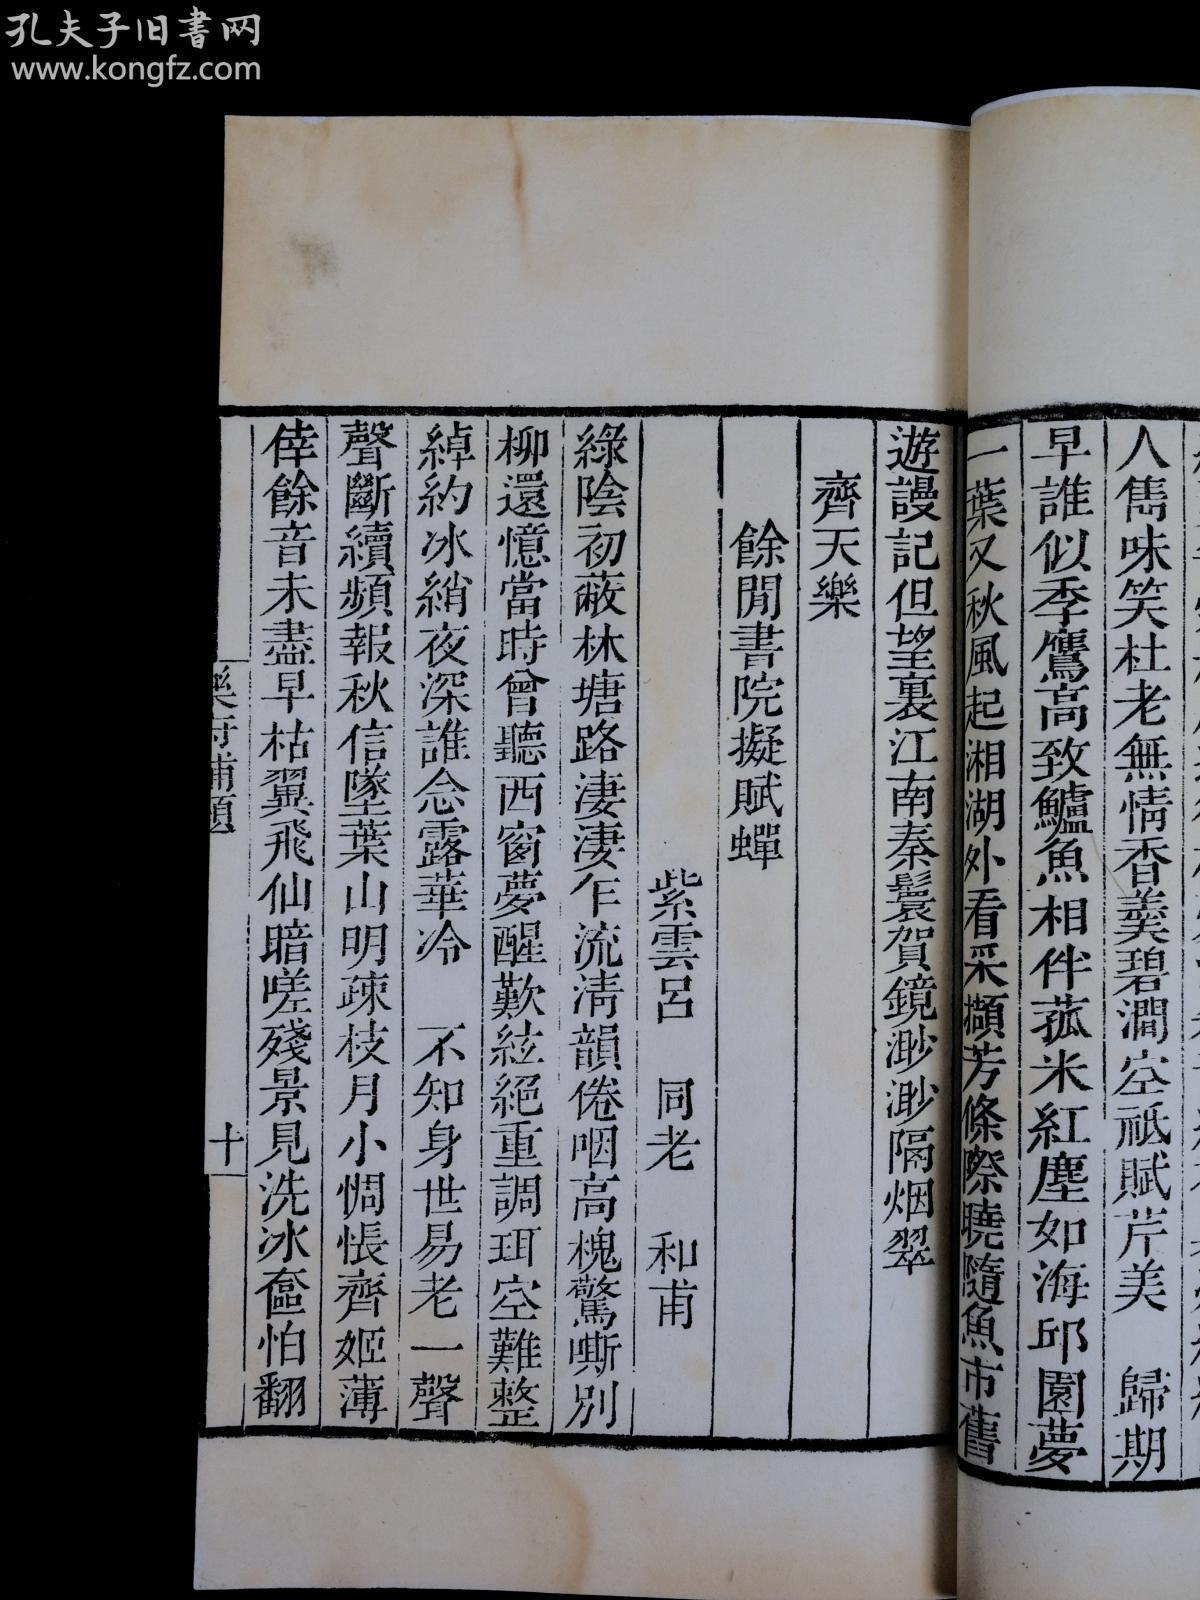 孔夫子旧书网
www.kongfz.com
人雋味笑杜老無情香羹碧澗空祗賦芹美　歸期
早誰似季鷹高致鱸魚相伴菰米紅塵如海邱園夢
一葉又秋風起湘湖外看采擷芳條際曉隨魚市舊
遊謾記但望裏江南秦鬟賀鏡渺渺隔烟翠
齊天樂
餘閒書院擬賦蟬
紫雲呂　同老　和甫
綠陰初蔽林塘路淒淒乍流淸韻倦咽高槐驚嘶別
柳還憶當時曾聽西窗夢醒歎絃絕重調珥空難整
綽約冰綃夜深誰念露華冷　不知身世易老一聲
聲斷續頻報秋信墜葉山明疎枝月小惆悵齊姬薄
倖餘音未盡早枯翼飛仙暗嗟殘景見洗冰奩怕翻
樂府補題
十